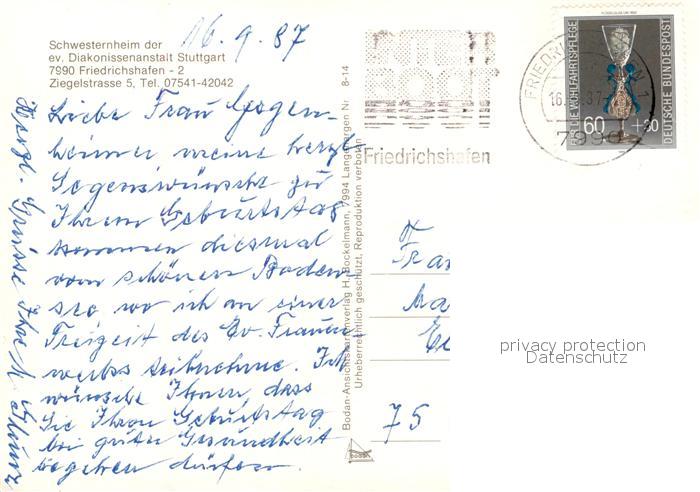 16.9.87
Schwesternheim der
ev. Diakonissenanstalt Stuttgart
7990 Friedrichshafen - 2
Ziegelstrasse 5, Tel. 07541-42042
Liebe Frau Gegen-
heimer meine herzl.
Segenswünsche zu
Ihrem Geburtstag
kommen diesmal
vom schönen Boden-
see, wo ich an einer
Freizeit des Ev. Frauen-
werks teilnehme. Ich
wünsche Ihnen, dass
Sie Ihren Geburtstag
bei guter Gesundheit
begehen dürfen.
Herzl. Grüsse Ihre
Bodan-Ansichtskartenverlag H. Bockelmann, 7994 Langenargen Nr. 8-14
Urheberrechtlich geschützt, Reproduktion verboten
BODAN
Friedrichshafen
FRIEDRICHSHAFEN 1
16. 87
7990
FÜR DIE WOHLFAHRTSPFLEGE
60 +30
DEUTSCHE BUNDESPOST
75
privacy protection
Datenschutz